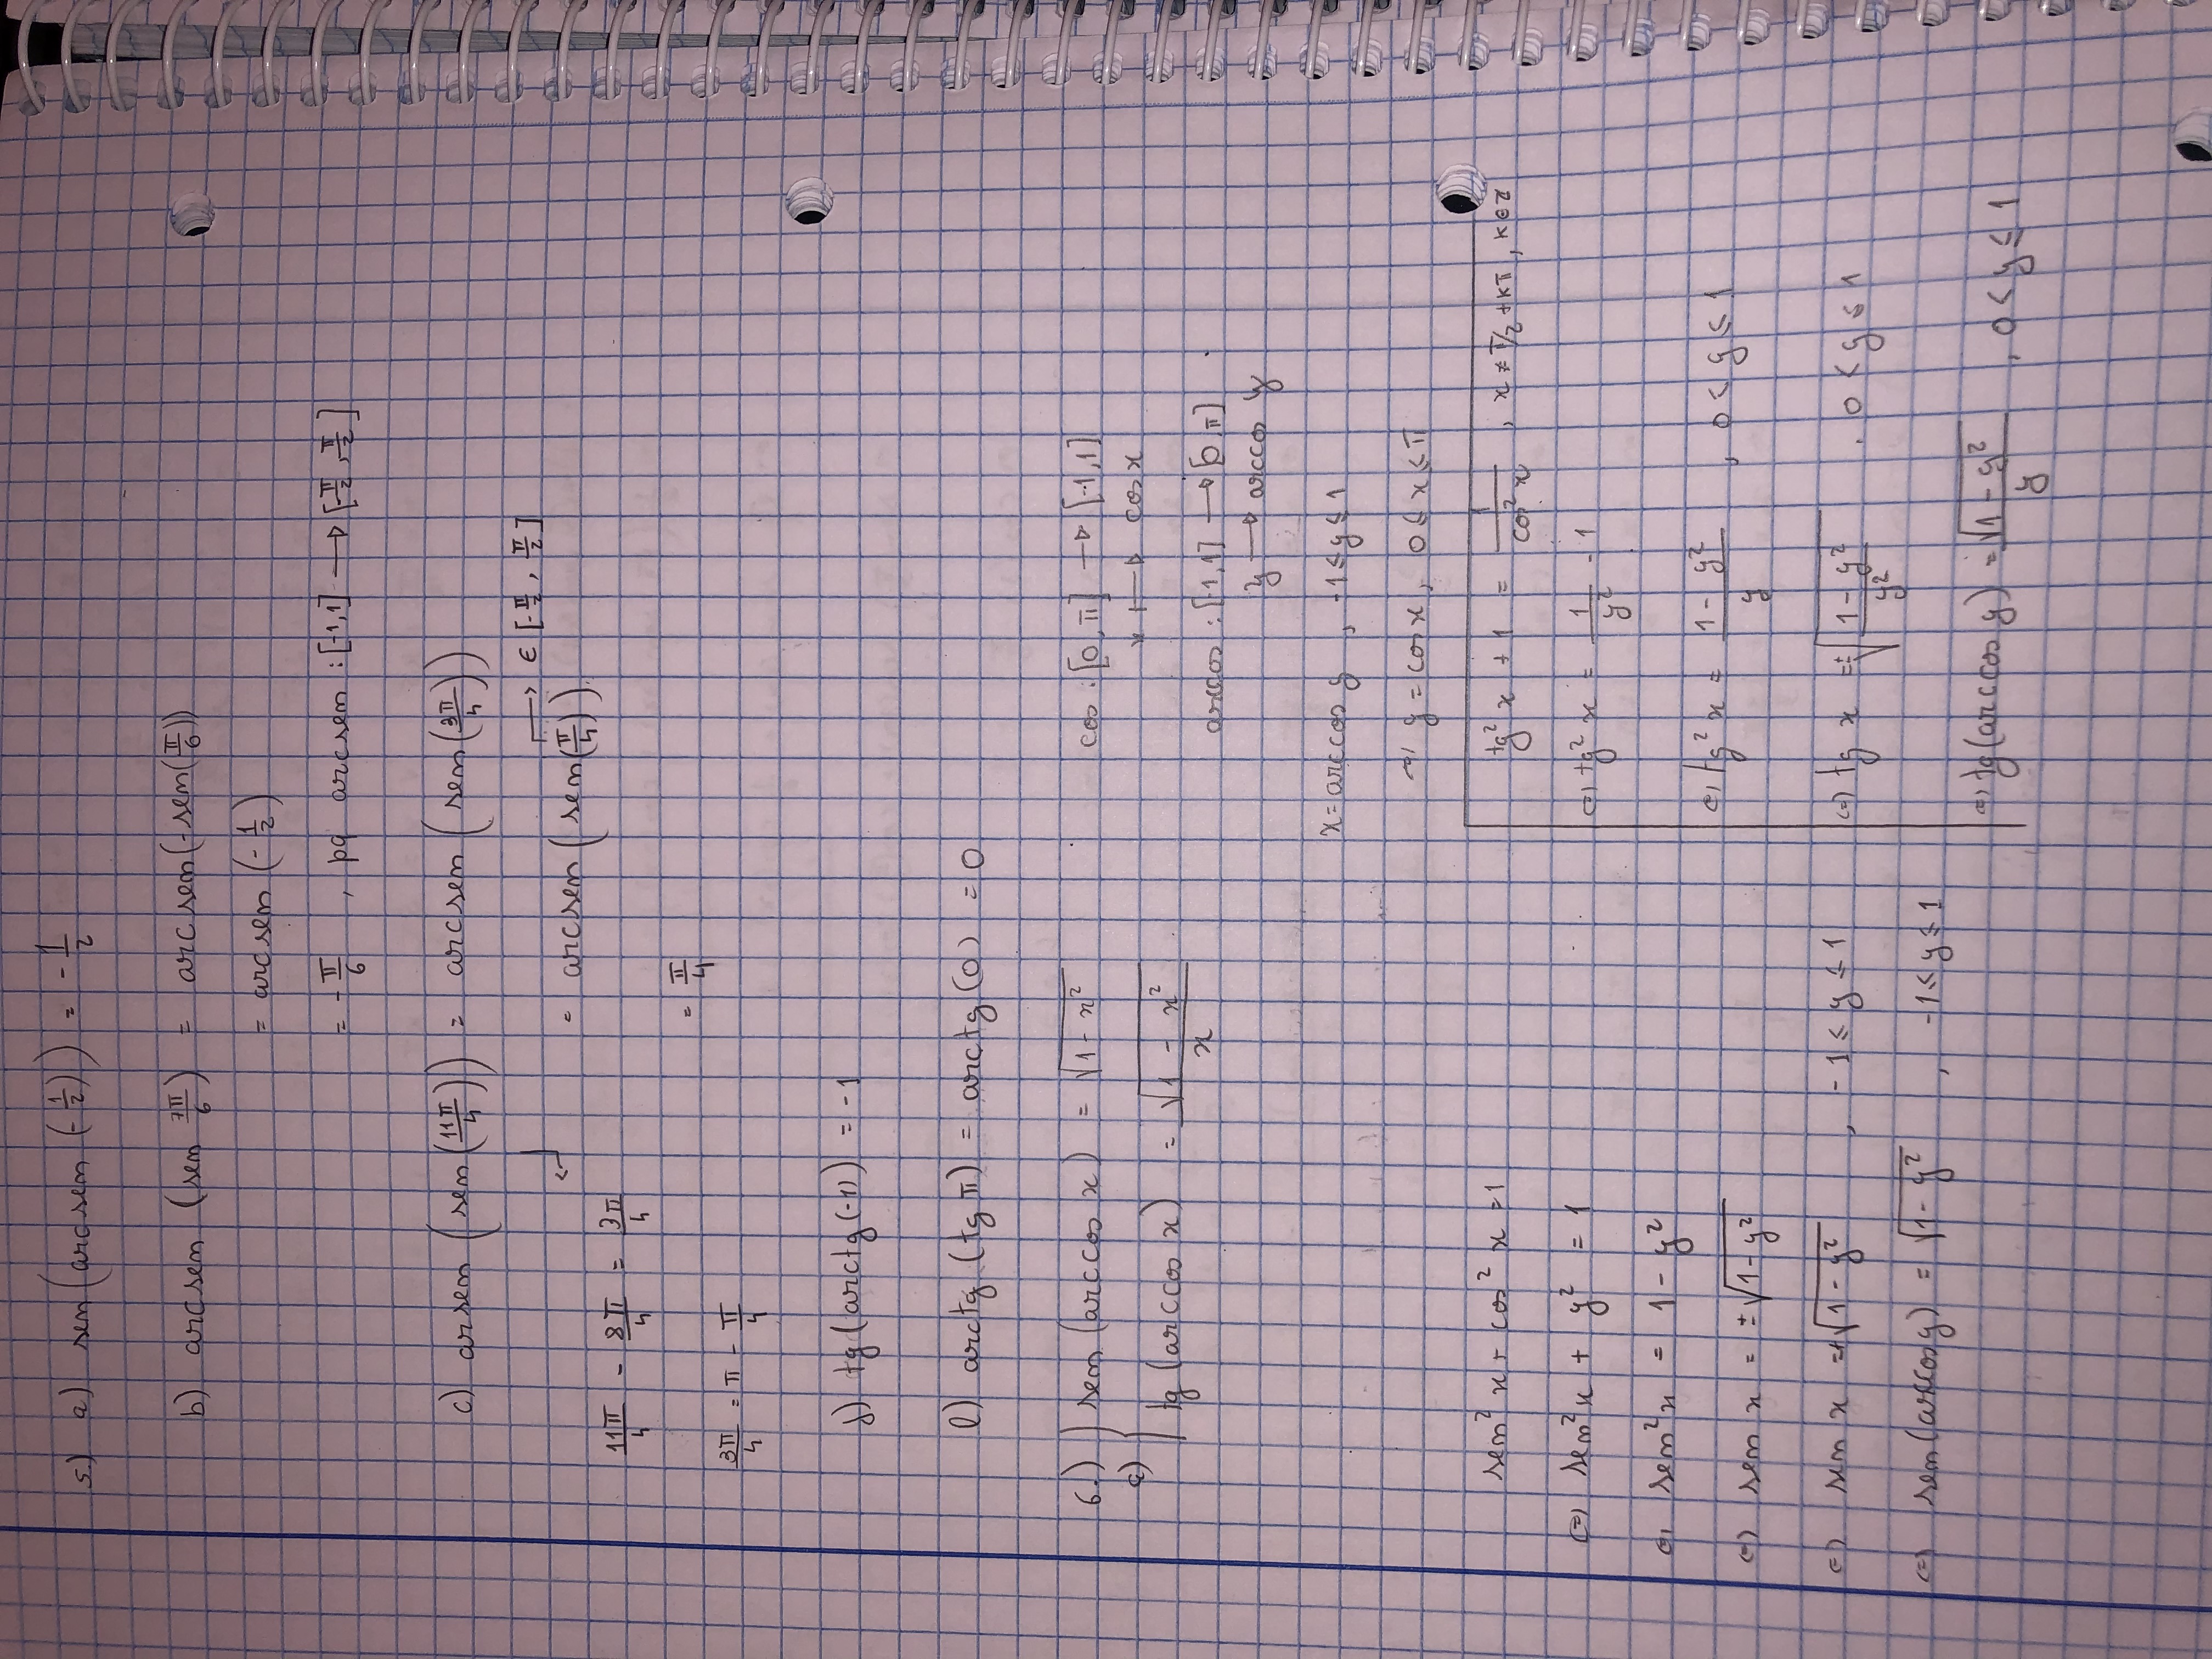 5.) a) sen(arcsen(-1/2)) = -1/2
b) arcsen (sen 7π/6) = arcsen(-sen(π/6))
= arcsen(-1/2)
= -π/6 , pq arcsen : [-1,1] → [-π/2, π/2]
c) arsen (sen(11π/4)) = arcsen (sen(3π/4))
→ ∈ [-π/2, π/2]
= arcsen (sen(π/4)).
11π/4 - 8π/4 = 3π/4
= π/4
3π/4 = π - π/4
j) tg(arctg(-1)) = -1
l) arctg (tg π) = arctg (0) = 0
6.) sen (arccos x) = √(1 - x²)
a) tg (arccos x) = √(1 - x²)/x
cos : [0, π] → [-1,1]
x ↦ cos x
arccos : [-1,1] → [0,π]
y → arccos y
x = arccos y , -1 ≤ y ≤ 1
⇔ y = cos x , 0 ≤ x ≤ π
sen² x + cos² x = 1
⇔ sen² x + y² = 1
⇔ sen² x = 1 - y²
⇔ sen x = ±√(1 - y²)
⇔ sen x = +√(1 - y²) , -1 ≤ y ≤ 1
⇔ sen(arccos y) = √(1 - y²) , -1 ≤ y ≤ 1
tg² x + 1 = 1/cos² x , x ≠ π/2 + kπ , k ∈ Z
⇔ tg² x = 1/y² - 1
⇔ tg² x = (1 - y²)/y , 0 < y ≤ 1
⇔ tg x = ±√((1 - y²)/y²) , 0 < y ≤ 1
⇔ tg(arccos y) = √(1 - y²)/y , 0 < y ≤ 1